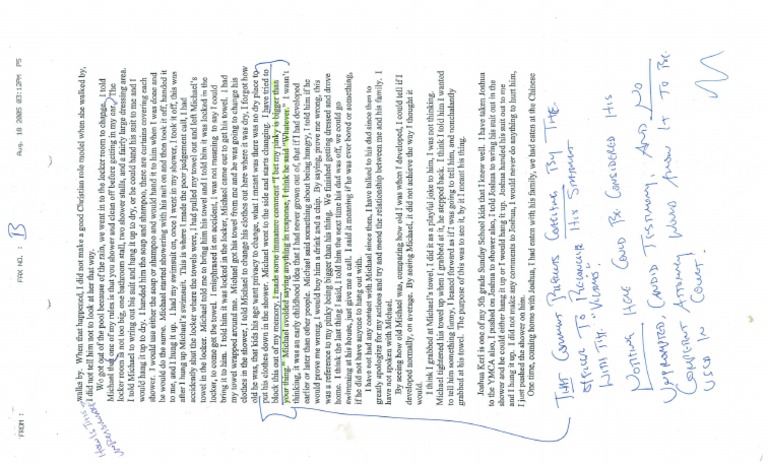 FROM : FAX NO. : B Aug. 18 2005 03:12PM P5
walks by. When that happened, I did not make a good Christian role model when she walked by,
I did not tell him not to look at her that way.
We got out of the pool because of the rain, we went in to the locker room to change. I told
Michael that one of my rules is that you shower and clean off before getting in my car. The
locker room is not too big, one bathroom stall, two shower stalls, and a fairly large dressing area.
I told Michael to wring out his suit and hang it up to dry, or he could hand his suit to me and I
would hang it up to dry. I handed him the soap and shampoo, there are curtains covering each
shower. I would use either the soap or shampoo and would hand it to him when I was done and
he would do the same. Michael started showering with his suit on and then took it off, handed it
to me, and I hung it up. I had my swimsuit on, once I went in my shower, I took it off, this was
after I hung up Michael's swimsuit. This is where I made the poor judgement call, I had
accidently shut the locker where the towels were, I had pulled my towel out and left Michael's
towel in the locker. Michael told me to bring him his towel and I told him it was locked in the
locker, to come get his towel. I emphasized it an accident, I was not meaning to say I could
bring it to him. I told him it was locked in the locker, Michael came out to get his towel. I had
my towel wrapped around me. Michael got his towel from me and he was going to change his
clothes in the shower, I told Michael to change his clothes out here where it was dry, I forgot how
old he was, that kids his age want privacy to change, what I meant was there was no dry place to
put his clothes down in the shower. Michael went to the side and starts changing. I have tried to
block this out of my memory, I made some immature comment "I bet my pinky is bigger than
your thing." Michael avoided saying anything in response, I think he said "Whatever." I wasn't
thinking, it was an early childhood idea that I had never grown out of, that if I had developed
earlier or later than other people. Michael said something about being hungry, I told him if he
would prove me wrong, I would boy him a drink and a chip. By saying, prove me wrong, this
was a reference to my pinky being bigger than his thing. We finished getting dressed and drove
home. I think the last thing I said, I told him the next time his dad was off, we could go
swimming at his house, just give me a call. I said it meaning if he was ever bored or something,
if he did not have anyone to hang out with.
I have not had any contact with Michael since then, I have talked to his dad since then to
greatly apologize for my actions and try and mend the relationship between me and his family. I
have not spoken with Michael.
By seeing how old Michael was, comparing how old I was when I developed, I could tell if I
developed normally, on average. By seeing Michael, it did not achieve the way I thought it
would.
I think I grabbed at Michael's towel, I did it as a playful joke to him, I was not thinking.
Michael tightened his towel up when I grabbed at it, he stepped back. I think I told him I wanted
to tell him something funny, I leaned forward as if I was going to tell him, and nonchalantly
grabbed at his towel. The purpose of this was to see it, by it I meant his thing.
was one of my 5th grade Sunday School kids that I knew well. I have taken Joshua
to the YMCA and I pushed on Joshua's shower also, told Joshua to wring his suit out in the
shower and he could either hang it up or I would hang it up. Joshua handed his suit out to me
and I hung it up. I did not make any comments to Joshua, I would never do anything to hurt him,
I just pushed the shower on him.
One time, coming home with Joshua, I had eaten with his family, we had eaten at the Chinese
THIS COMMENT
OFFICER TO
HIS
WITH THIS "VICTIMS".
NOTHING HERE COULD BE CONSIDERED HIS
UNPROMPTED CANDID TESTIMONY AND NO
COMPETENT ATTORNEY WOULD IT TO BE
USED IN COURT.